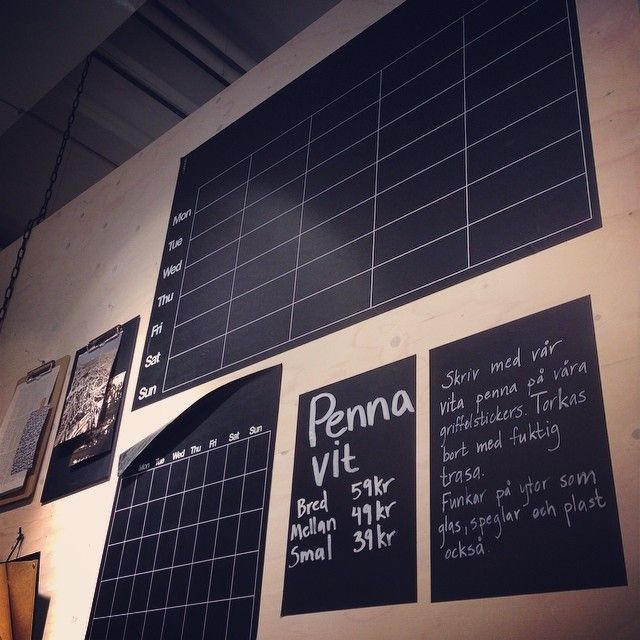 Mon
Tue
Wed
Thu
Fri
Sat
Sun
Mon Tue Wed Thu Fri Sat Sun
Penna
vit
Bred 59kr
Mellan 49kr
Smal 39kr
Skriv med vår
vita penna på våra
griffelstickers. Torkas
bort med fuktig
trasa.
Funkar på ytor som
glas, speglar och plast
också.